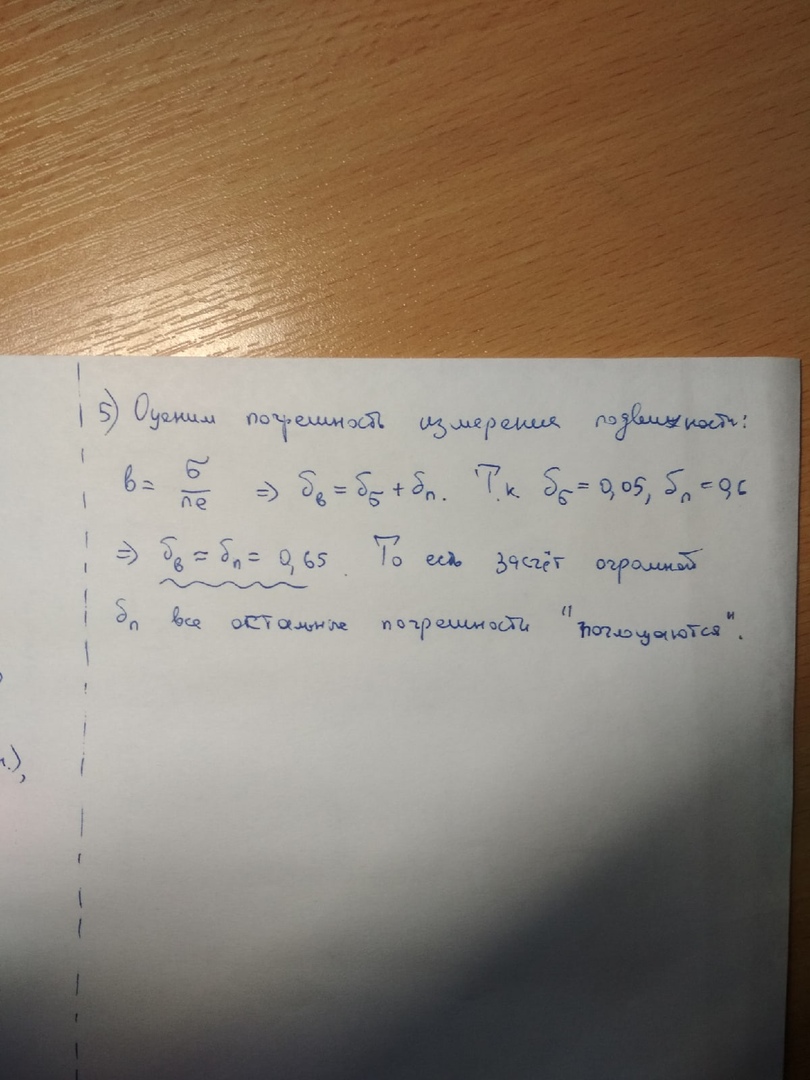 5) Оценим погрешность измерения подвижности:
b = σ/ne => δ_b = δ_σ + δ_n. Т.к. δ_σ = 0,05, δ_n = 0,6
=> δ_b = δ_n = 0,65. То есть засчёт огромной
δ_n все остальные погрешности "поглощаются".
),